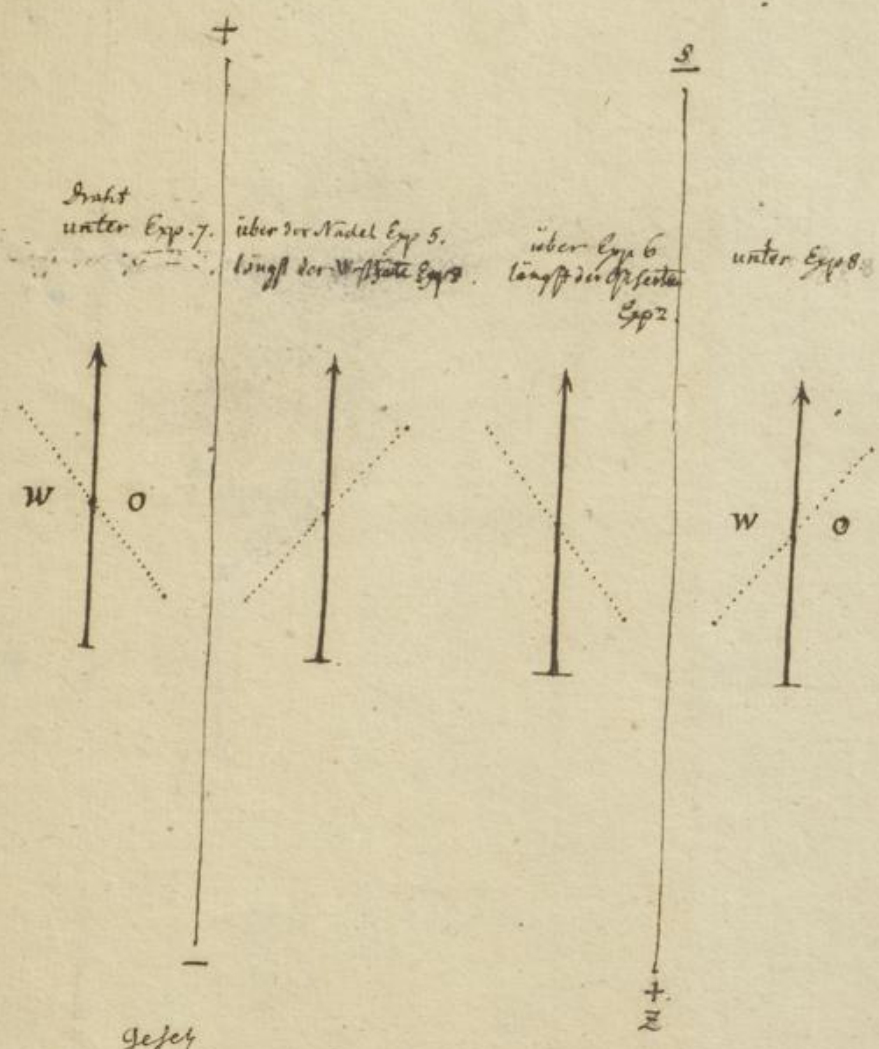 +
S
Draht
unter Exp. 7.
über der Nadel Exp 5.
längst der Exp
über Exp 6
längst der
Exp 2.
unter Exp 8.
W O
W O
-
+
Z
Gesetz